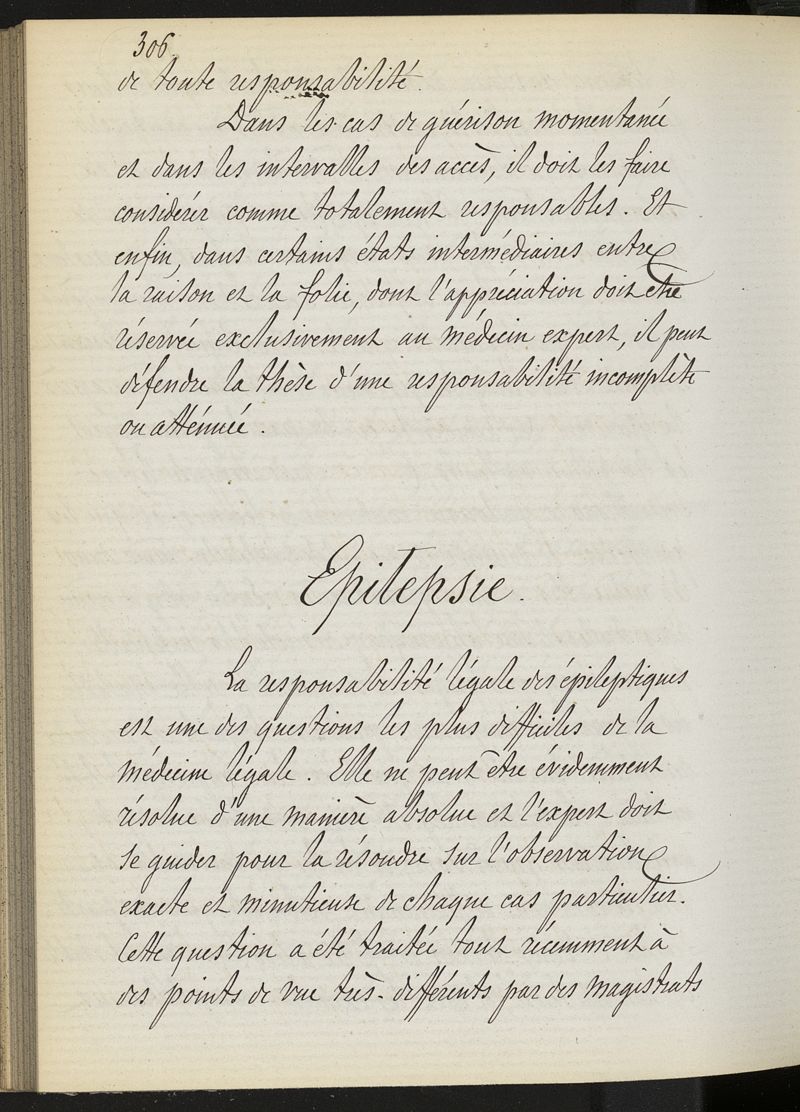 306.
de toute responsabilité.
Dans les cas de guérison momentanée
et dans les intervalles des accès, il doit les faire
considérer comme totalement responsables. Et
enfin, dans certains états intermédiaires entre
la raison et la folie, dont l'appréciation doit être
réservée exclusivement au médecin expert, il peut
défendre la thèse d'une responsabilité incomplète
ou atténuée.
Epilepsie.
La responsabilité légale des épileptiques
est une des questions les plus difficiles de la
médecine légale. Elle ne peut être évidemment
résolue d'une manière absolue et l'expert doit
se guider pour la résoudre sur l'observation
exacte et minutieuse de chaque cas particulier.
Cette question a été traitée tout récemment à
des points de vue très-différents par des magistrats